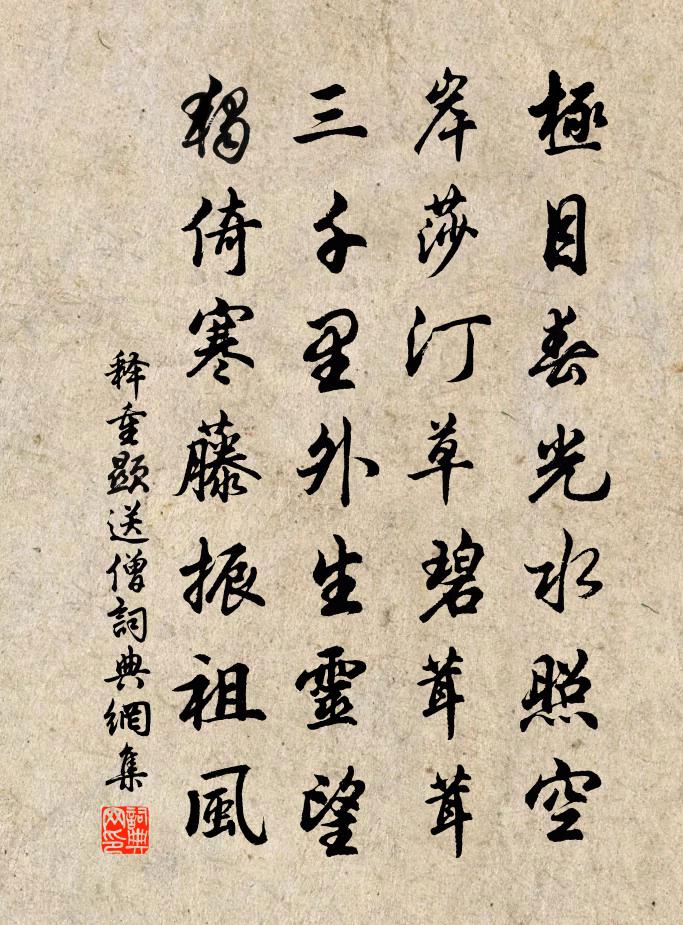 極目春光水照空
岸莎汀草碧茸茸
三千里外生靈望
獨倚寒藤振祖風
释重顯送僧詞典網集
詞典网印